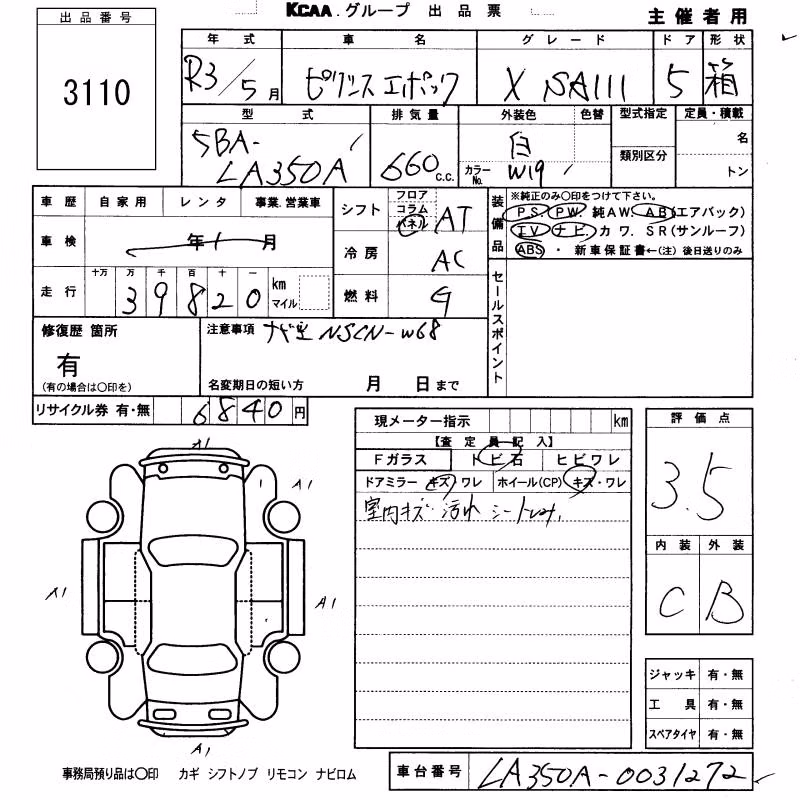 KCAA.グループ 出品票
主催者用
出品番号
3110
年式 車名 グレード ドア 形状
R3/5月 X SAIII 5 箱
型式 排気量 外装色 色替 型式指定 定員・積載
5BA-LA350A 660 c.c. 白 カラーNo. W19 類別区分 名 トン
車歴 自家用 レンタ 事業.営業車
シフト フロア コラム パネル AT
装備品 ※純正のみ〇印をつけて下さい。
PS. PW. 純AW. AB(エアバック)
TV ナビ. カワ. SR(サンルーフ)
ABS ・ 新車保証書←(注) 後日送りのみ
車検 年 月
冷房 AC
走行 十万 万 千 百 十 一 km マイル
3 9 8 2 0
燃料 G
セールスポイント
修復歴 箇所
有
(有の場合は〇印を)
注意事項 NSCN-W68
名変期日の短い方 月 日まで
リサイクル券 有・無 6840円
現メーター指示 km
【査定員記入】
Fガラス トビ石 ヒビワレ
ドアミラー キズ・ワレ ホイール(CP) キズ・ワレ
室内キズ・汚れ
評価点
3.5
内装 外装
C B
A1
A1
A1
A1
A1
ジャッキ 有・無
工具 有・無
スペアタイヤ 有・無
事務局預り品は〇印 カギ シフトノブ リモコン ナビロム
車台番号 LA350A-0031272